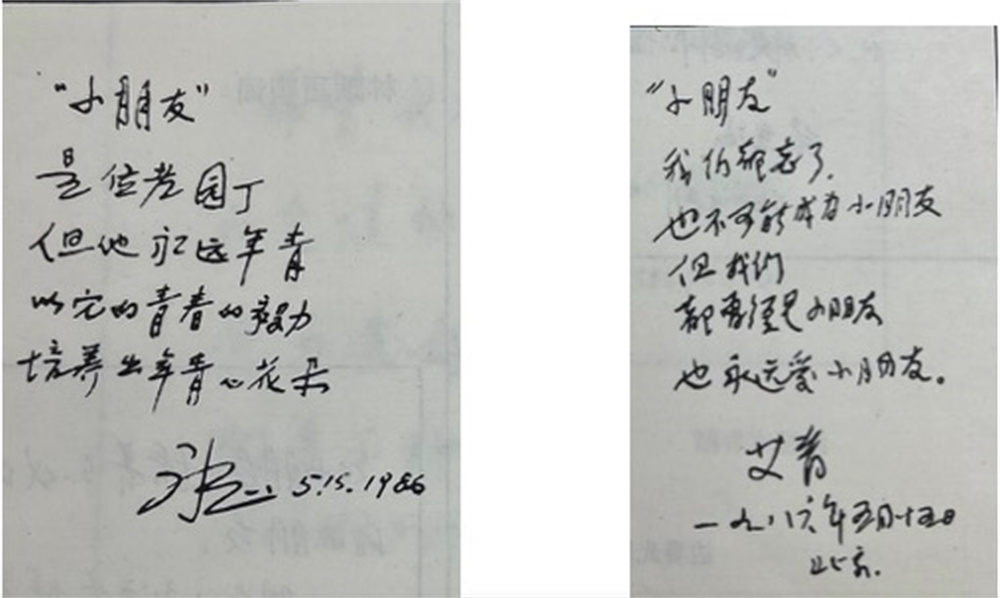 “小朋友”
是位老园丁
但他永远年青
以它的青春的毅力
培养出年青的花朵
5.15.1986
“小朋友”
我们都老了，
也不可能成为小朋友
但我们
都曾经是小朋友
也永远爱小朋友。
艾青
一九八六年五月十五日
北京.